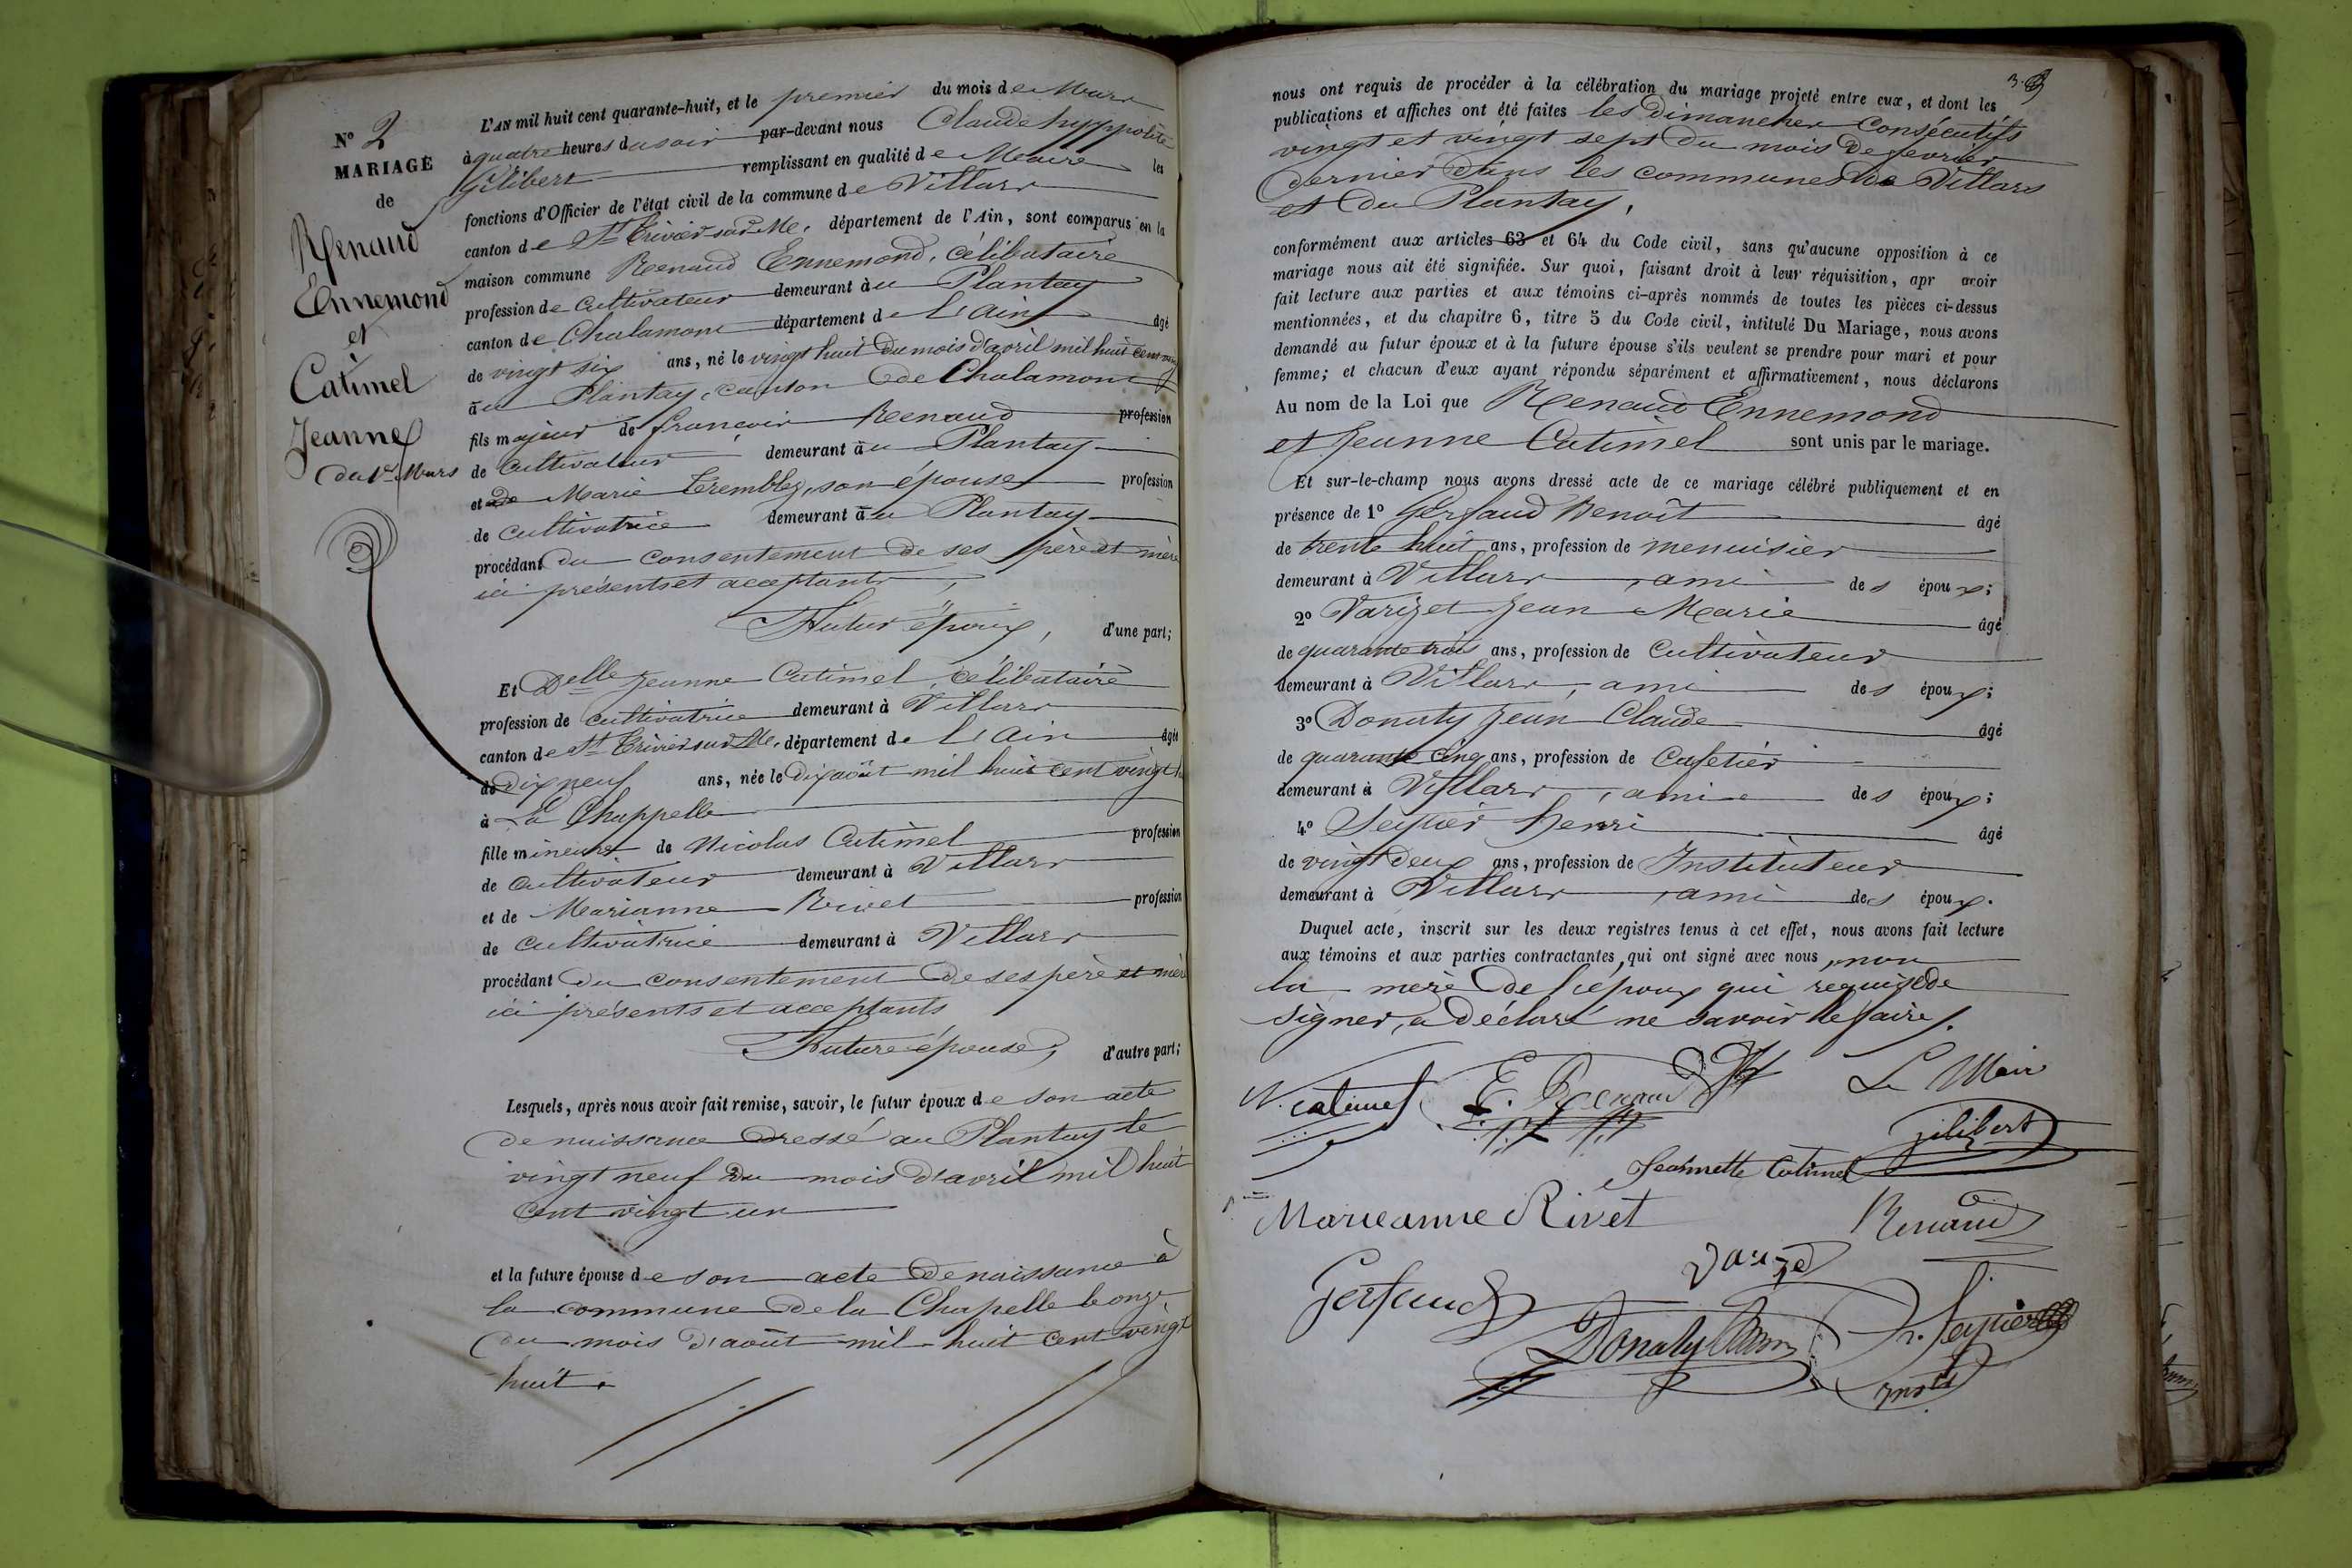 N° 2
MARIAGE
de
Renaud
Ennemond
et
Catimel
Jeanne
du 1er Mars
L'AN mil huit cent quarante-huit, et le premier du mois de Mars
à quatre heures du soir par-devant nous Claude hyppolite
Gilibert remplissant en qualité de Maire les
fonctions d'Officier de l'état civil de la commune de Villars
canton de St Trivier sur Me. département de l'Ain, sont comparus en la
maison commune Renaud Ennemond, célibataire
profession de cultivateur demeurant au Plantay
canton de Chalamont département de L'Ain âgé
de vingt six ans, né le vingt huit du mois d'avril mil huit cent
au Plantay, canton de Chalamont
fils majeur de françois Renaud profession
de cultivateur demeurant au Plantay
et de Marie Tremblay, son épouse profession
de cultivatrice demeurant au Plantay
procédant du consentement de ses père et mère
ici présents et acceptants,
Futur époux, d'une part;
Et Delle Jeanne Catimel, célibataire
profession de cultivatrice demeurant à Villars
canton de St Trivier sur Me. département de L'Ain âgée
de dix neuf ans, née le dix août mil huit cent vingt
à La Chappelle
fille mineure de Nicolas Catimel profession
de cultivateur demeurant à Villars
et de Marianne Rivet profession
de cultivatrice demeurant à Villars
procédant du consentement de ses père et mère
ici présents et acceptants
Future épouse, d'autre part;
Lesquels, après nous avoir fait remise, savoir, le futur époux de son acte
de naissance dressé au Plantay le
vingt neuf du mois d'avril mil huit
cent vingt un
et la future épouse de son acte de naissance à
la commune de la Chapelle le onze
du mois d'août mil huit cent vingt
huit.
3.
nous ont requis de procéder à la célébration du mariage projeté entre eux, et dont les
publications et affiches ont été faites les dimanches consécutifs
vingt et vingt sept du mois de fevrier
dernier dans les communes de Villars
et du Plantay,
conformément aux articles 63 et 64 du Code civil, sans qu'aucune opposition à ce
mariage nous ait été signifiée. Sur quoi, faisant droit à leur réquisition, apr avoir
fait lecture aux parties et aux témoins ci-après nommés de toutes les pièces ci-dessus
mentionnées, et du chapitre 6, titre 5 du Code civil, intitulé Du Mariage, nous avons
demandé au futur époux et à la future épouse s'ils veulent se prendre pour mari et pour
femme; et chacun d'eux ayant répondu séparément et affirmativement, nous déclarons
Au nom de la Loi que Renaud Ennemond
et Jeanne Catimel sont unis par le mariage.
Et sur-le-champ nous avons dressé acte de ce mariage célébré publiquement et en
présence de 1° Gerfaud Benoît âgé
de trente huit ans, profession de menuisier
demeurant à Villars, ami des époux;
2° Varizet Jean Marie âgé
de quarante trois ans, profession de cultivateur
demeurant à Villars, ami des époux;
3° Donaty Jean Claude âgé
de quarante cinq ans, profession de Cafetier
demeurant à Villars, ami des époux;
4° Seytier henri âgé
de vingt deux ans, profession de Instituteur
demeurant à Villars, ami des époux.
Duquel acte, inscrit sur les deux registres tenus à cet effet, nous avons fait lecture
aux témoins et aux parties contractantes, qui ont signé avec nous, non
la mère de l'époux qui requise de
signer, a déclaré ne savoir le faire.
N. catimel E. Renaud Le Maire
gilibert
Jeannette Catimel
Marieanne Rivet Renaud
Varizet
Gerfaud
Donaty h. Seytier
instr